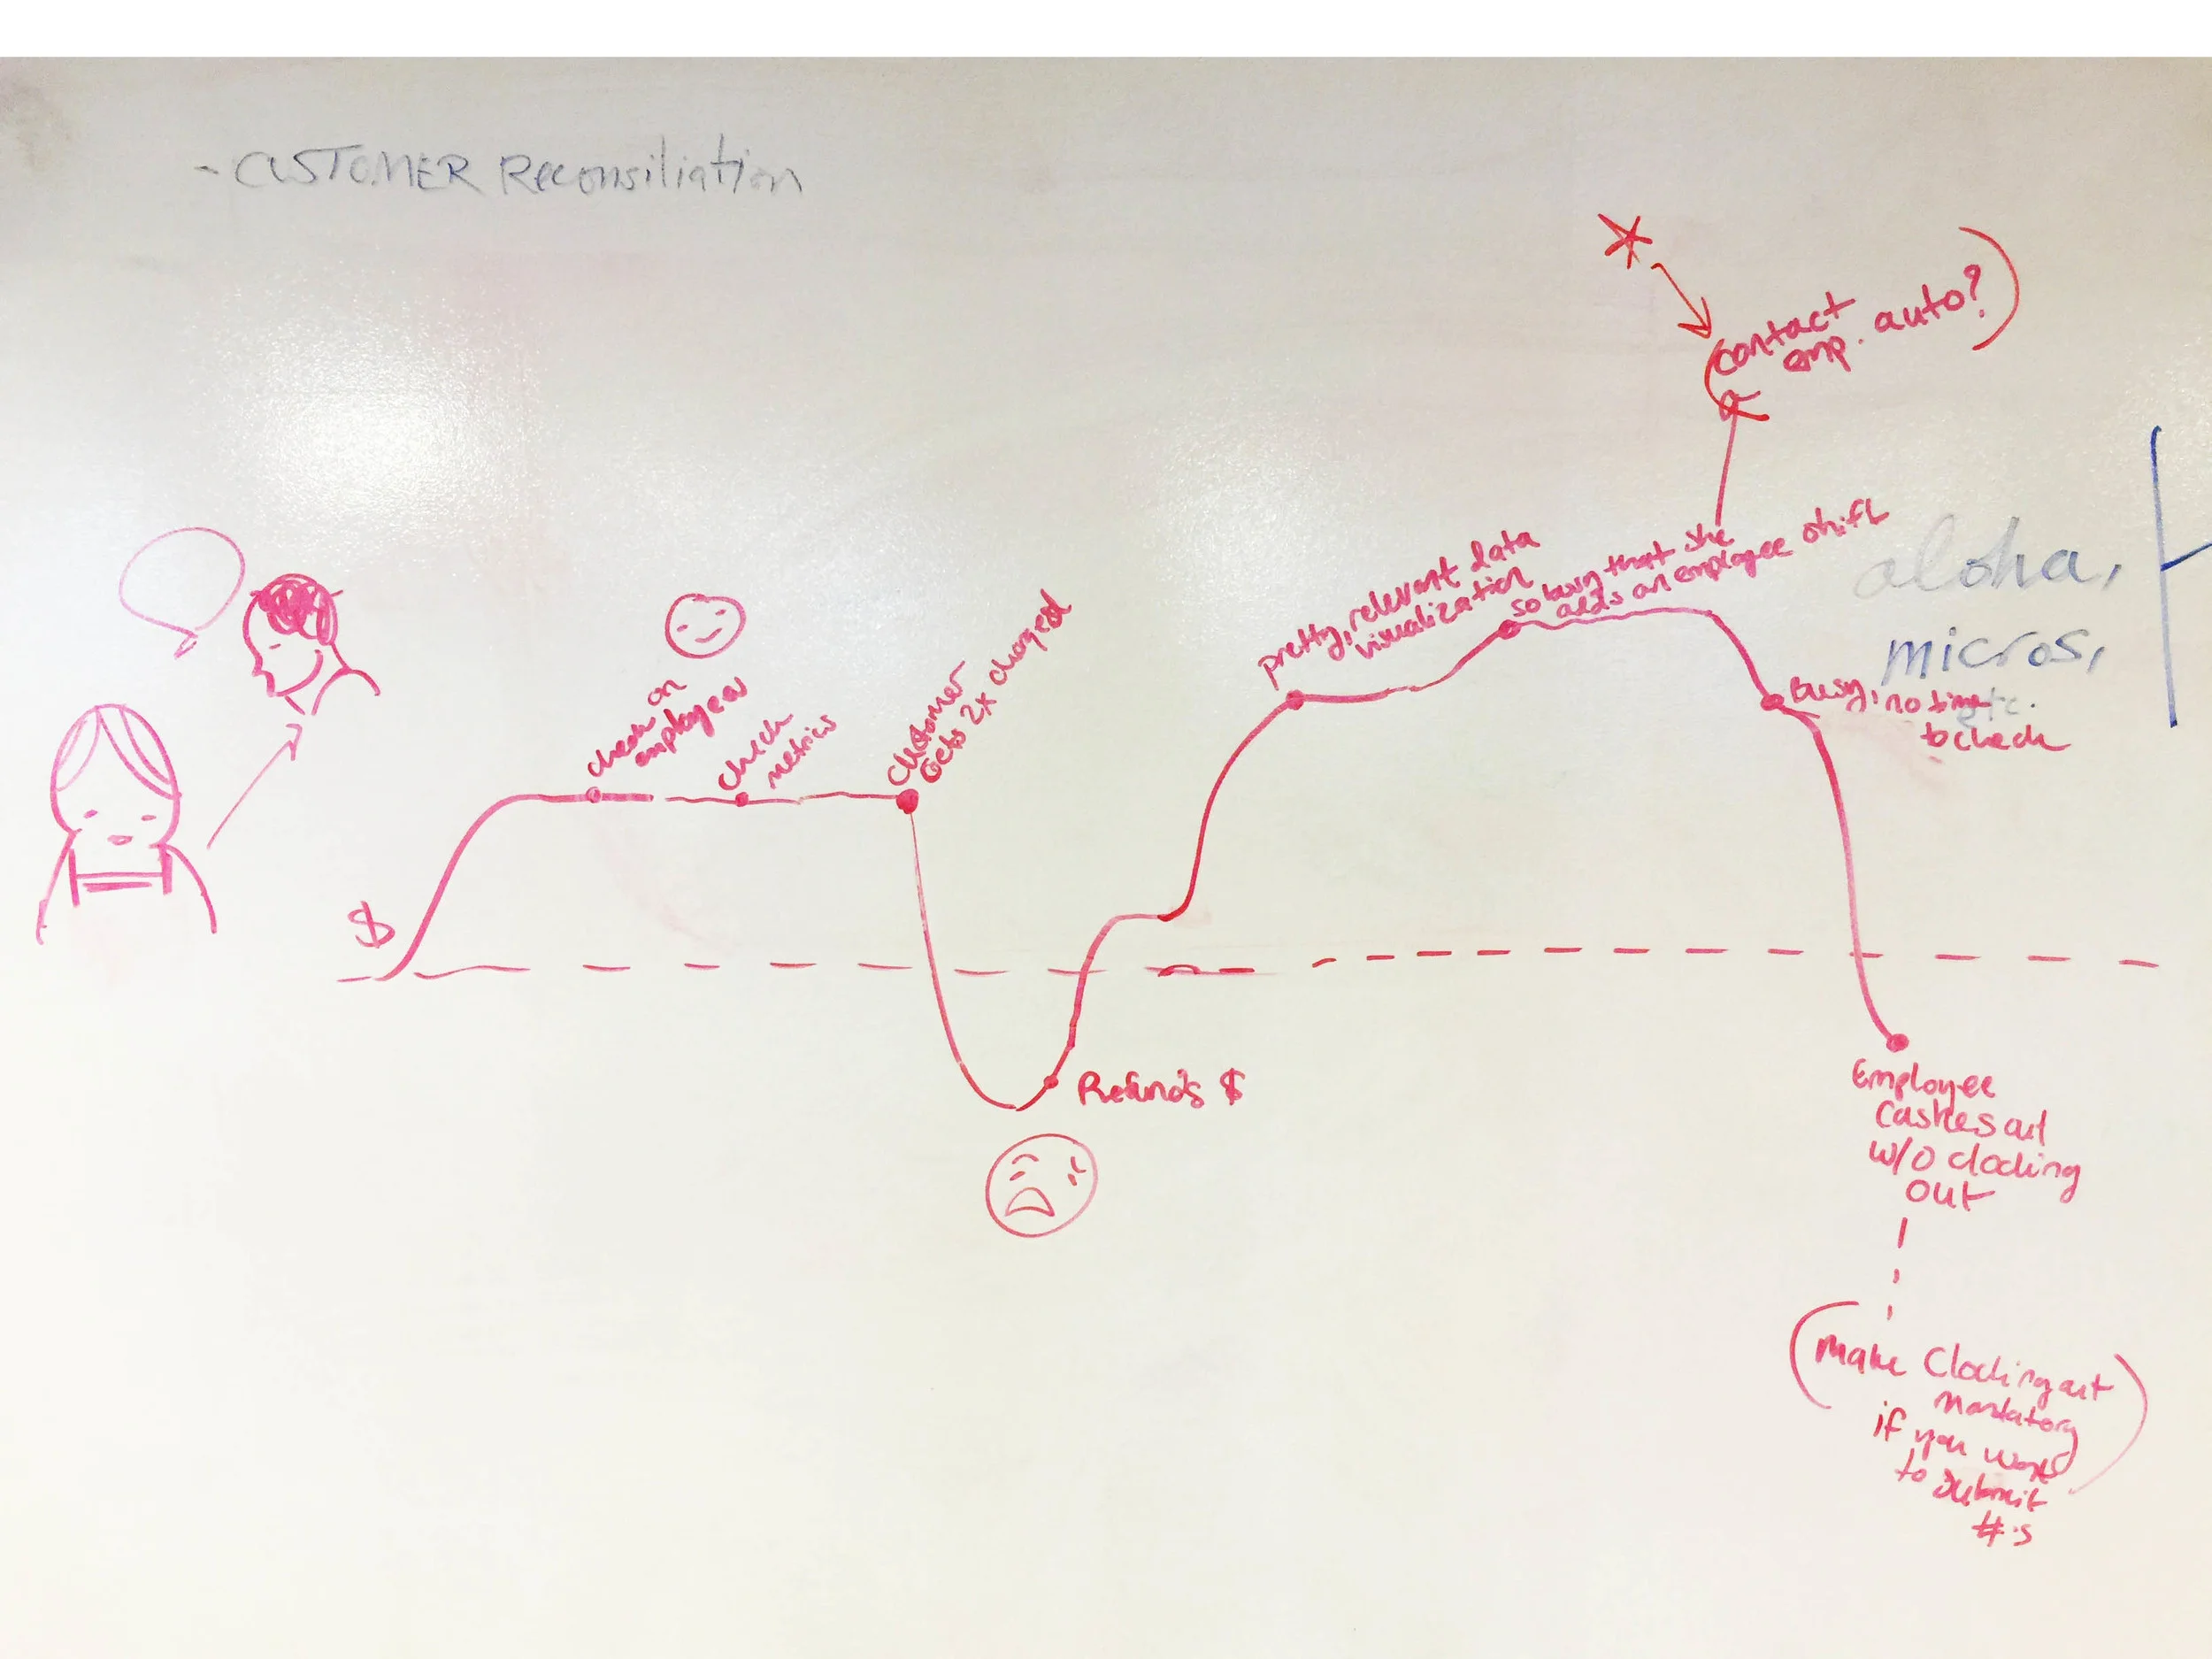 - CUSTOMER Reconsiliation
(contact
emp. auto?)
pretty, relevant data
visualization
so busy that she
adds an employee shift
aloha,
micros,
etc.
check on
employees
check
metrics
Customer
Gets 2x charged
Busy, no time
to check
$
Refunds $
Employee
Cashes out
w/o clocking
out
(Make Clocking out
mandatory
if you want
to submit
#'s)